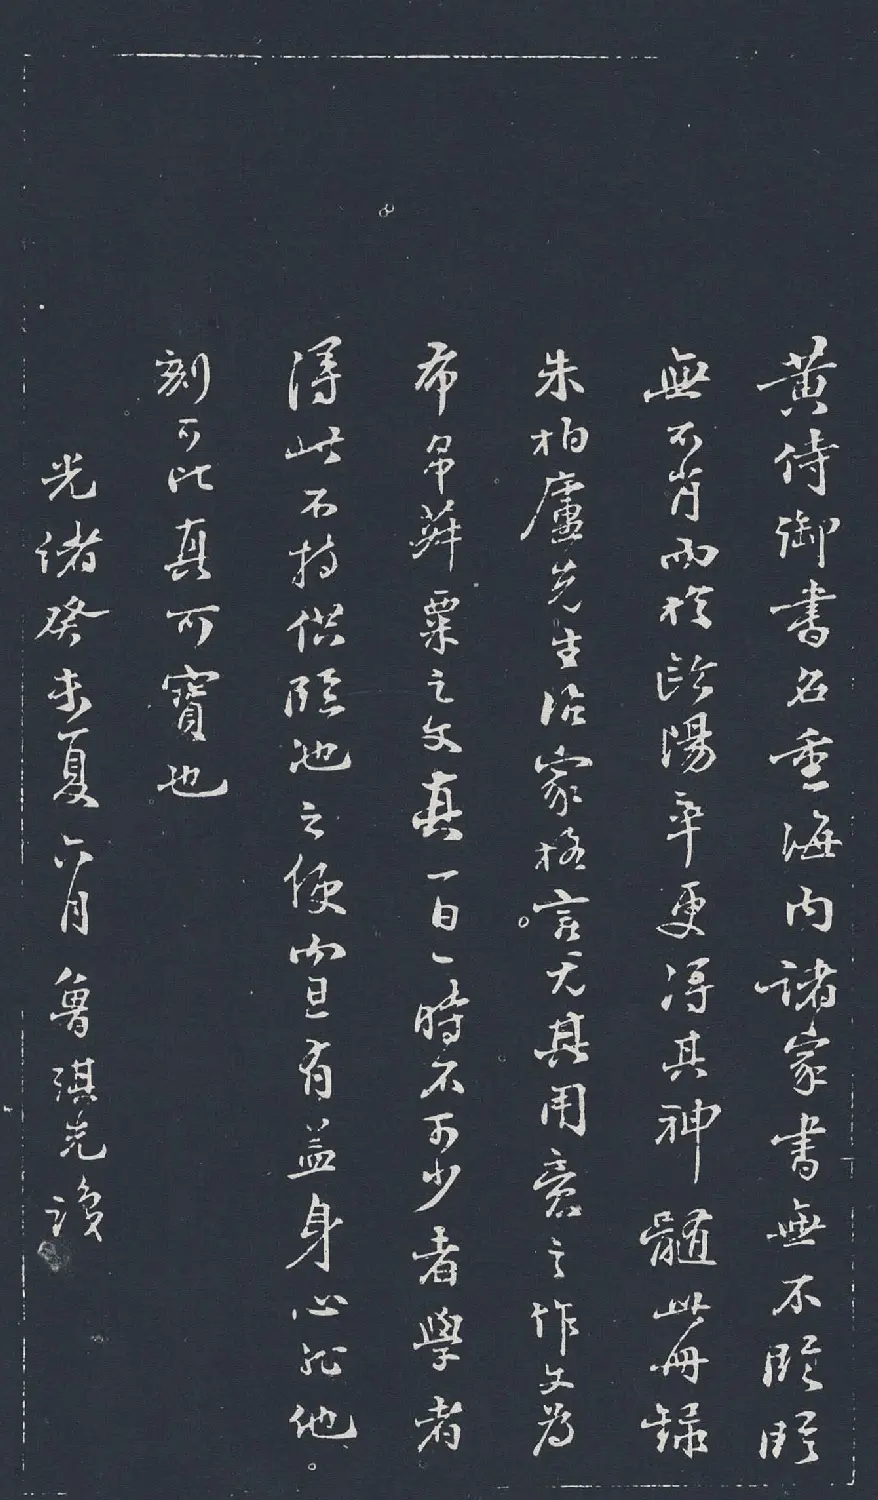 黃侍御書名重海内諸家書無不臨臨
無不肖而於歐陽率更得其神髓此冊錄
朱柏廬先生治家格言尤其用意之作文為
布帛菽粟之文真一日一時不可少者學者
得此不特供臨池之便而且有益身心非他
刻可比真可寶也
光緒癸未夏六月魯琪光識